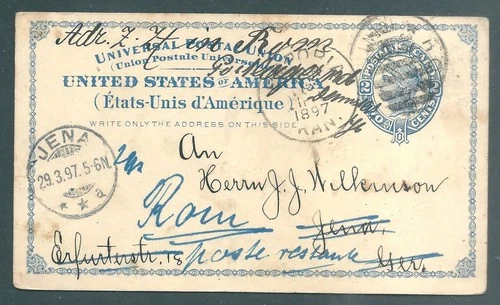 Adr. z. H
UNIVERSAL POSTAL UNION
(Union Postale Universelle)
UNITED STATES OF AMERICA
(États-Unis d'Amérique)
WRITE ONLY THE ADDRESS ON THIS SIDE.
POSTAL CARD
2 TWO CENTS 2
1897
KAN.
JENA
29.3.97.5-6N.
* * a
An
Herrn J. J. Wilkinson
Rom
Jena.
Erfurterstr. 18
poste restante
Ger.